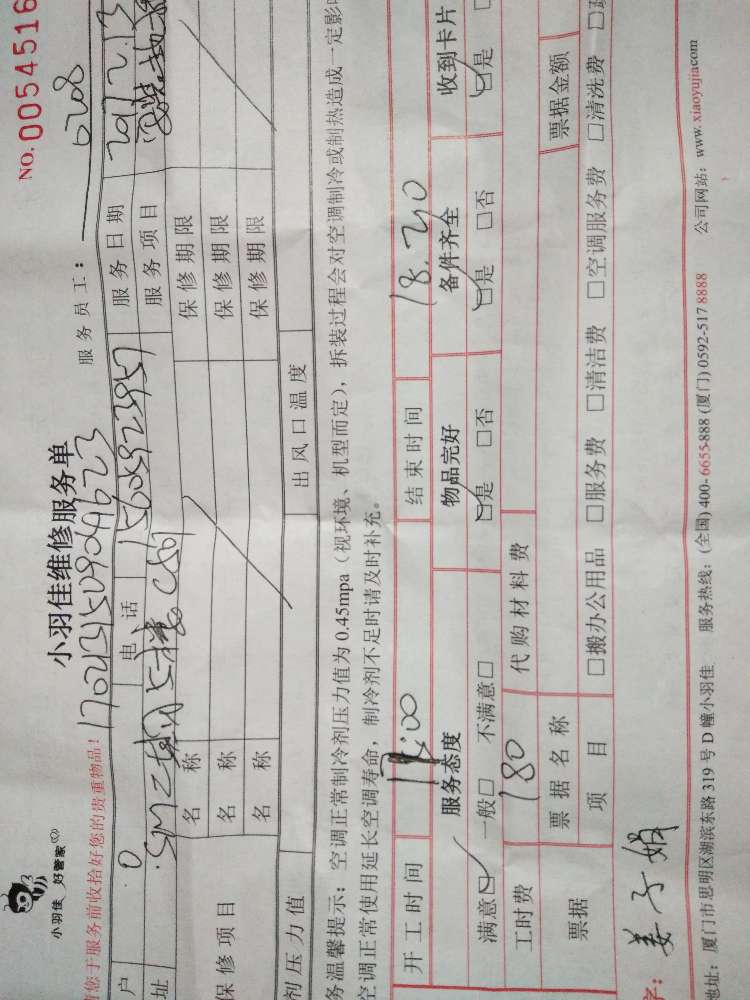 小羽佳 好管家
小羽佳维修服务单
NO. 0054516
请您于服务前收拾好您的贵重物品！
服务员工：
户
电 话
服务日期 2017.2.13
址
服务项目
保修项目
名 称
保修期限
名 称
保修期限
名 称
保修期限
剂压力值
出风口温度
务温馨提示：空调正常制冷剂压力值为0.45mpa（视环境、机型而定），拆装过程会对空调制冷或制热造成一定影
空调正常使用延长空调寿命，制冷剂不足时请及时补充。
开工时间
结束时间
服务态度 物品完好 备件齐全 收到卡片
满意☑ 一般□ 不满意□ ☑是 □否 ☑是 □否 ☑是
工时费 180 代购材料费
票据 票据名称 票据金额
项 目 □搬办公用品 □服务费 □清洁费 □空调服务费 □清洗费
姜子娟
地址：厦门市思明区湖滨东路319号D幢小羽佳 服务热线：(全国) 400-6655-888 (厦门) 0592-517 8888 公司网站：www. xiaoyujiacom